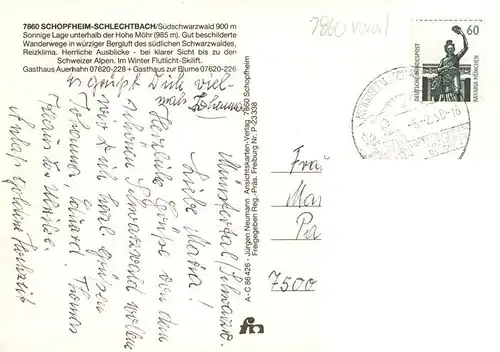 7860 SCHOPFHEIM-SCHLECHTBACH/Südschwarzwald 900 m
Sonnige Lage unterhalb der Hohe Möhr (985 m). Gut beschilderte
Wanderwege in würziger Bergluft des südlichen Schwarzwaldes,
Reizklima. Herrliche Ausblicke - bei klarer Sicht bis zu den
Schweizer Alpen. Im Winter Flutlicht-Skilift.
Gasthaus Auerhahn 07620-228 + Gasthaus zur Blume 07620-226
7860
60
DEUTSCHE BUNDESPOST
BAVARIA MÜNCHEN
es grüßt Dich viel-
mals Johanna
Münstertal/Schwarzw.
Liebe Maria!
Herzliche Grüße von dem
schönen Schwarzwald wollen
wir Dir
Johanna, Eduard, Thomas
goldene Hochzeit
A-C 86426 - Jürgen Neumann Ansichtskarten-Verlag 7860 Schopfheim
Freigegeben Reg.-Präs. Freiburg Nr. P-23 338
Frau
Mar
Pa
7500